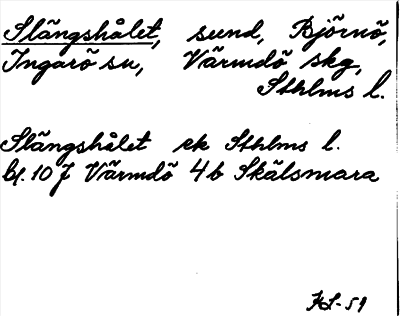 Slängshålet, sund, Björnö,
Ingarö sn, Värmdö skg,
Sthlms l.
Slängshålet ek Sthlms l.
bl. 10 J Värmdö 4b Skälsmara
KL-59